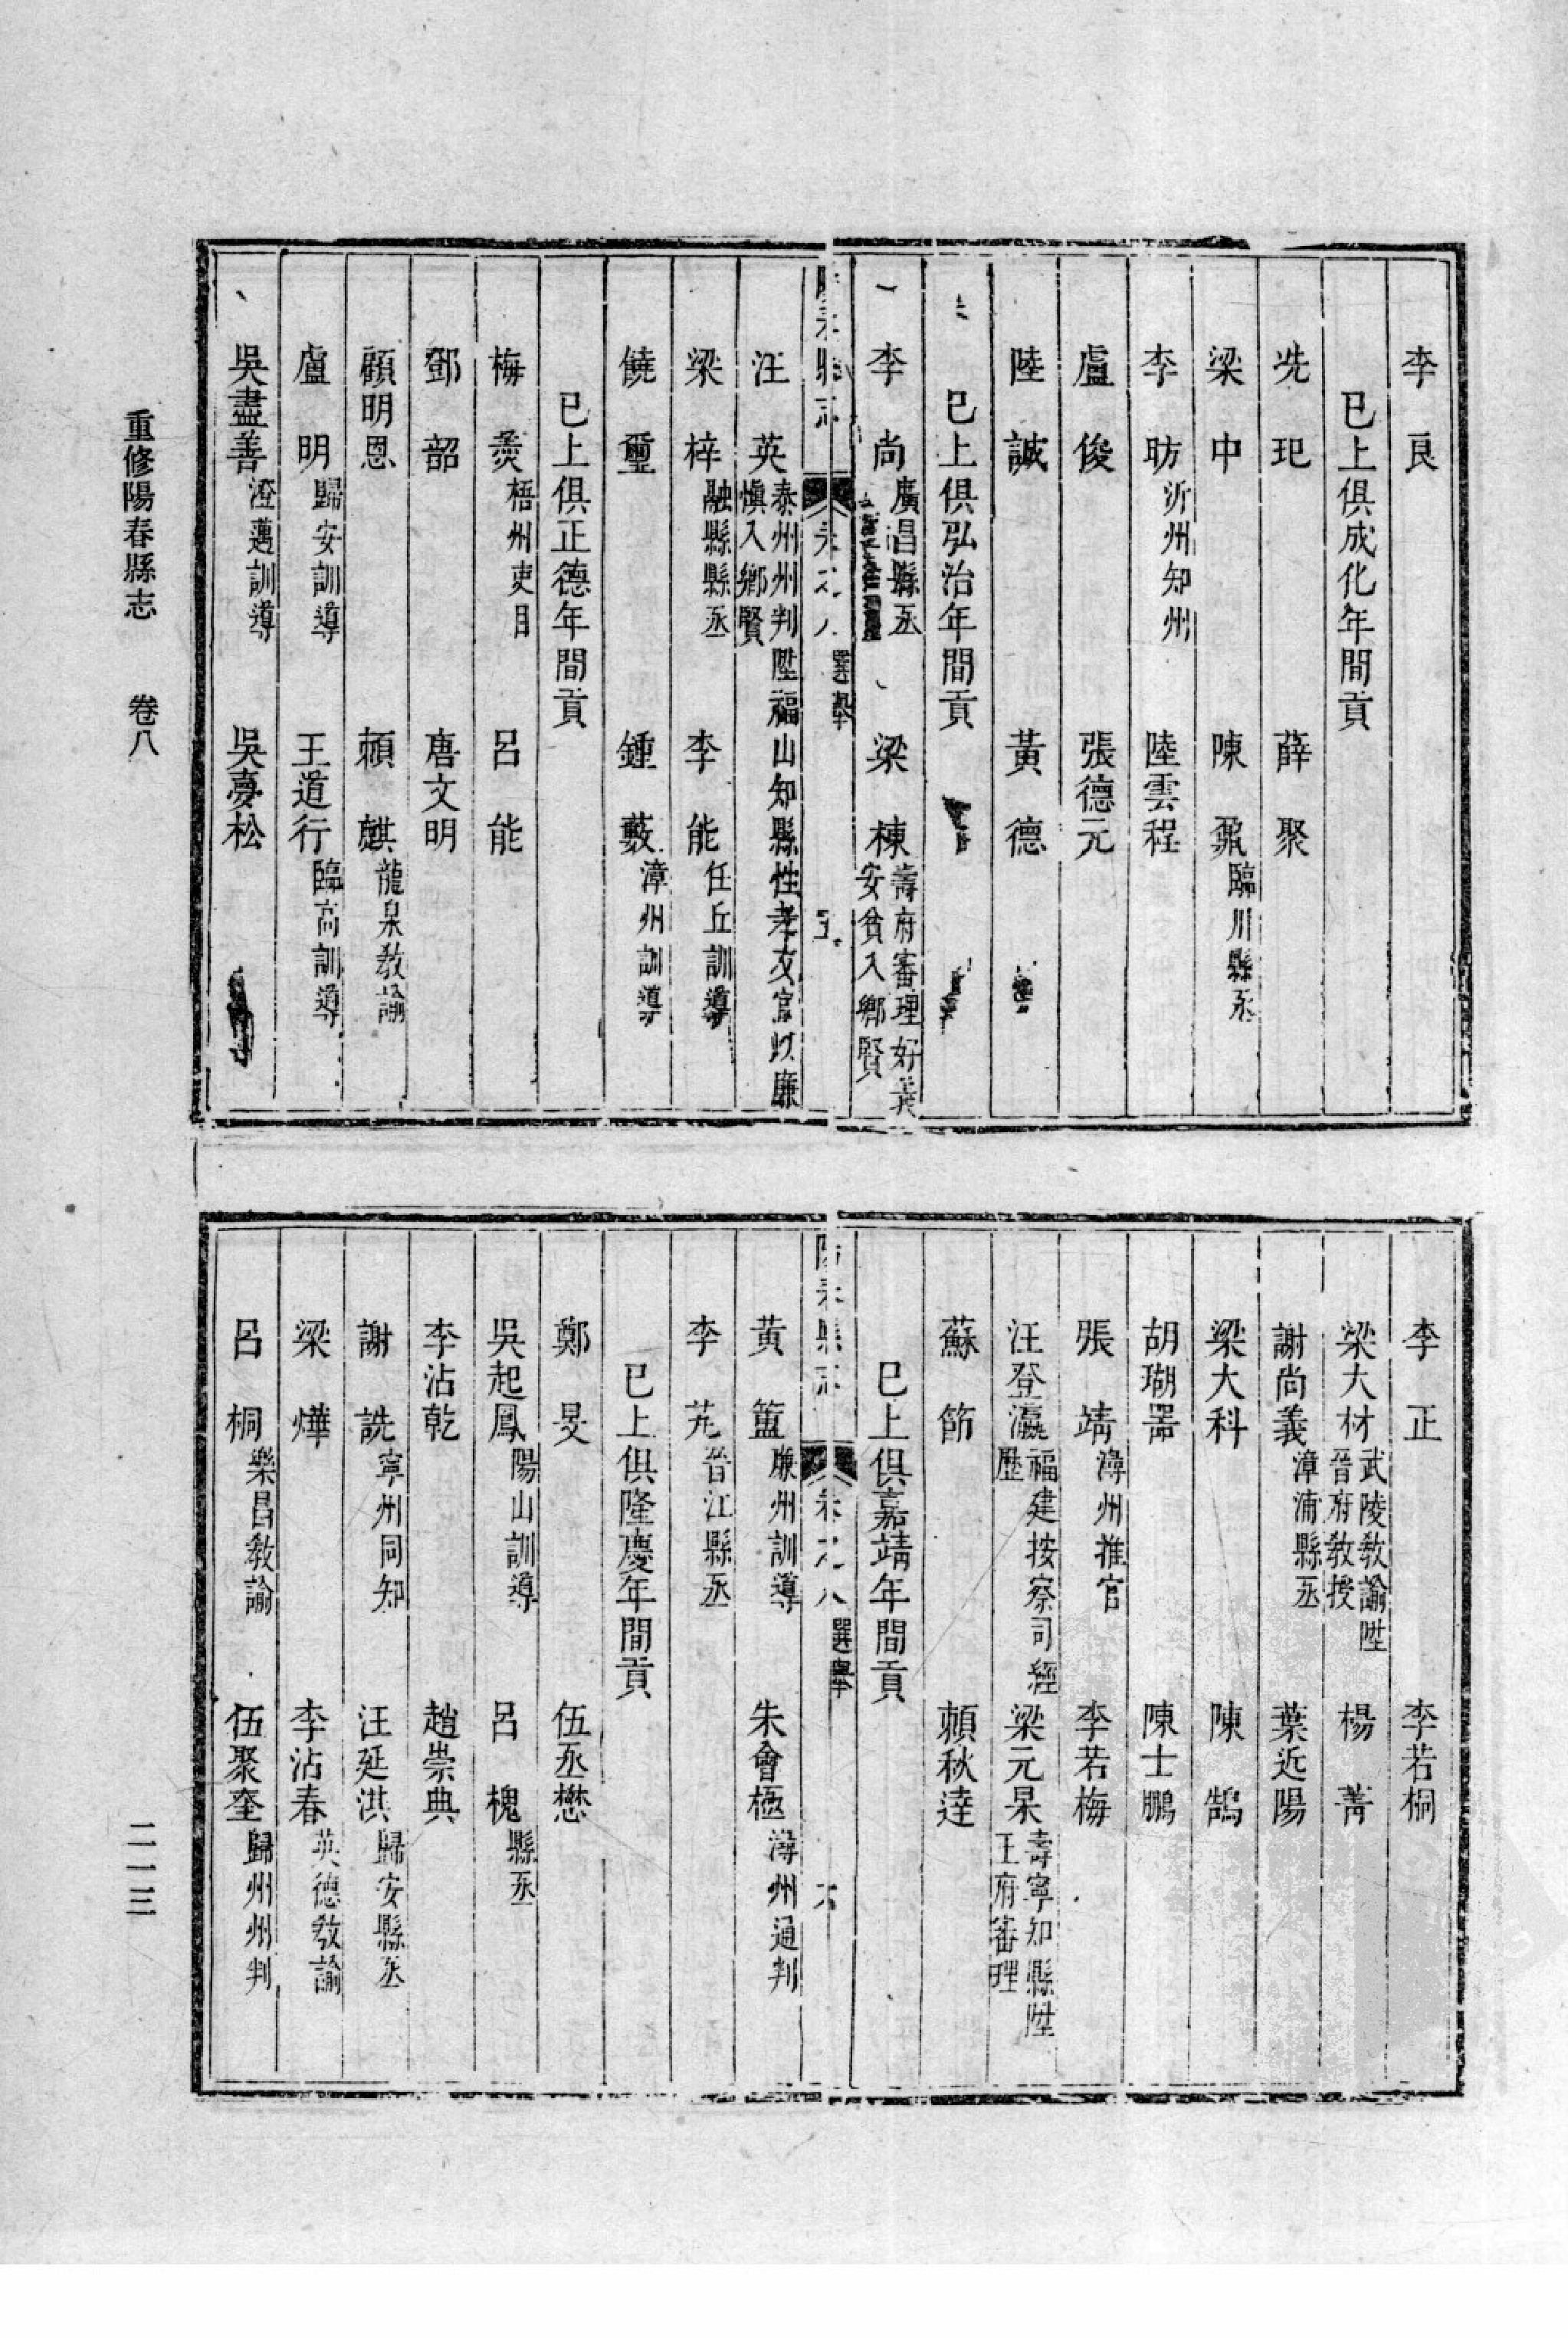 李良
已上俱成化年間貢
冼玘　薛聚
梁中　陳鼐臨川縣丞
李昉沂州知州　陸雲程
盧俊　張德元
陸誠　黃德
已上俱弘治年間貢
李尚廣昌縣丞　梁棟壽府審理好義安貧入鄉賢
陽春縣志　卷之八　選舉　五
汪英泰州州判陞福山知縣性孝友官以廉慎入鄉賢
梁梓融縣縣丞　李能任丘訓導
饒璽　鍾藪漳州訓導
已上俱正德年間貢
梅㷼梧州吏目　呂能
鄧韶　唐文明
顧明恩　賴麒龍泉教諭
盧明歸安訓導　王道行臨高訓導
吳盡善澄邁訓導　吳夢松
李正　李若桐
梁大材武陵教諭陞晉府教授　楊菁
謝尚義漳浦縣丞　葉近陽
梁大科　陳鵠
胡瑚器　陳士鵬
張靖漳州推官　李若梅
汪登瀛福建按察司經歷　梁元杲壽寧知縣陞王府審理
蘇節　賴秋達
已上俱嘉靖年間貢
陽春縣志　卷之八　選舉　六
黃簠廉州訓導　朱會極潯州通判
李芃晉江縣丞
已上俱隆慶年間貢
鄭旻　伍丞懋
吳起鳳陽山訓導　呂槐縣丞
李沾乾　趙崇典
謝詵寧州同知　汪延洪歸安縣丞
梁燁　李沾春英德教諭
呂桐樂昌教諭　伍聚奎歸州州判
重修陽春縣志　卷八
二一三